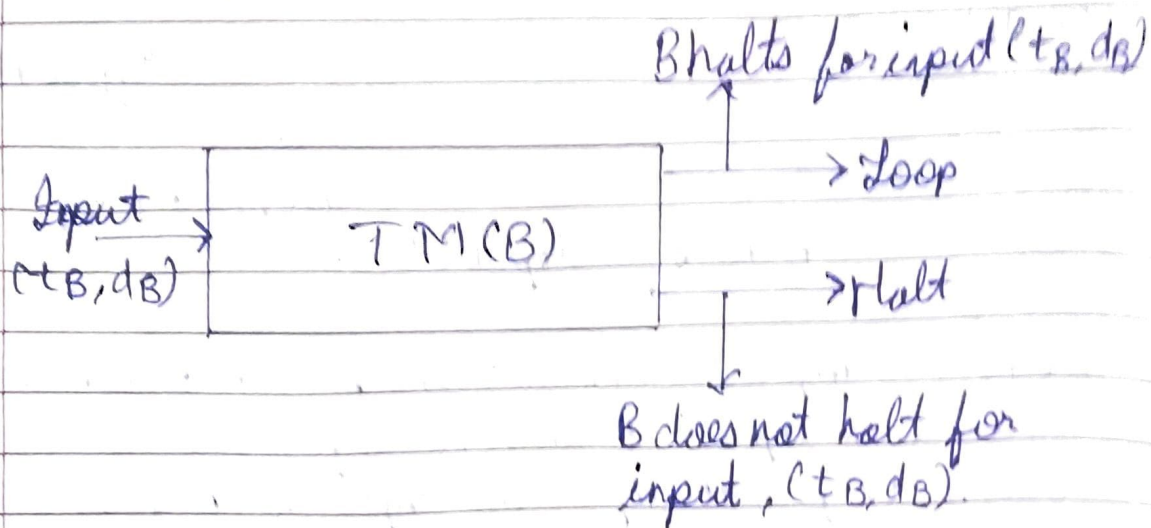 B halts for input (tB, dB)
Loop
Input
TM(B)
(tB, dB)
Halt
B does not halt for
input, (tB, dB).